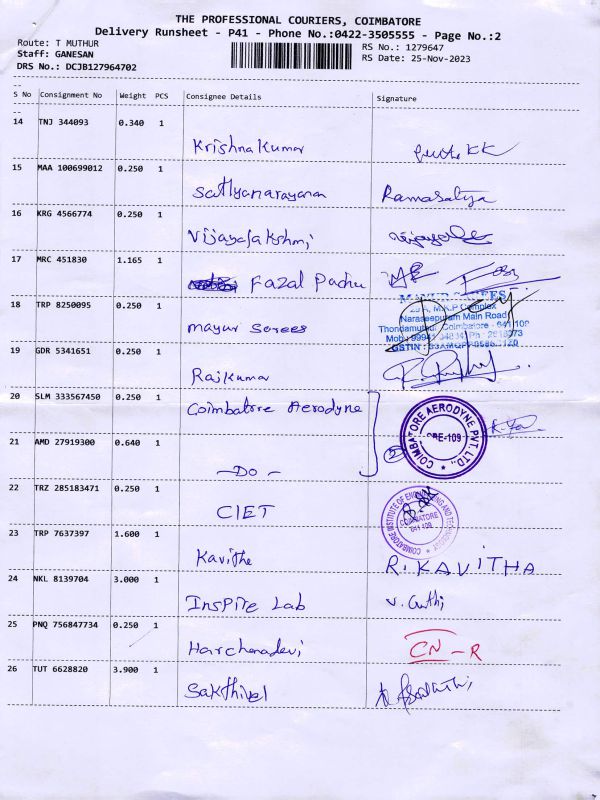 THE PROFESSIONAL COURIERS, COIMBATORE
Delivery Runsheet - P41 - Phone No.:0422-3505555 - Page No.:2
Route: T MUTHUR
RS No.: 1279647
Staff: GANESAN
RS Date: 25-Nov-2023
DRS No.: DCJB127964702
S No Consignment No Weight PCS Consignee Details Signature
14 TNJ 344093 0.340 1
Krishnakumar KK
15 MAA 100699012 0.250 1
Sathyanarayanan Ramasatya
16 KRG 4566774 0.250 1
Vijayalakshmi
17 MRC 451830 1.165 1
Fazal Pasha
18 TRP 8250095 0.250 1
Mayuri Sarees
M.K.P Complex
Naraseepuram Main Road
Thondamuthur, Coimbatore - 641 109
19 GDR 5341651 0.250 1
Rajkumar
20 SLM 333567450 0.250 1
Coimbatore Aerodyne
COIMBATORE AERODYNE PVT. LTD.,
CBE-109
21 AMD 27919300 0.640 1
-Do-
2
22 TRZ 285183471 0.250 1
CIET
COIMBATORE INSTITUTE OF ENGINEERING AND TECHNOLOGY
COIMBATORE
641 109
23 TRP 7637397 1.600 1
Kavitha R. KAVITHA
24 NKL 8139704 3.000 1
Inspire Lab
25 PNQ 756847734 0.250 1
Harchenadevi CN-R
26 TUT 6628820 3.900 1
Sakthivel